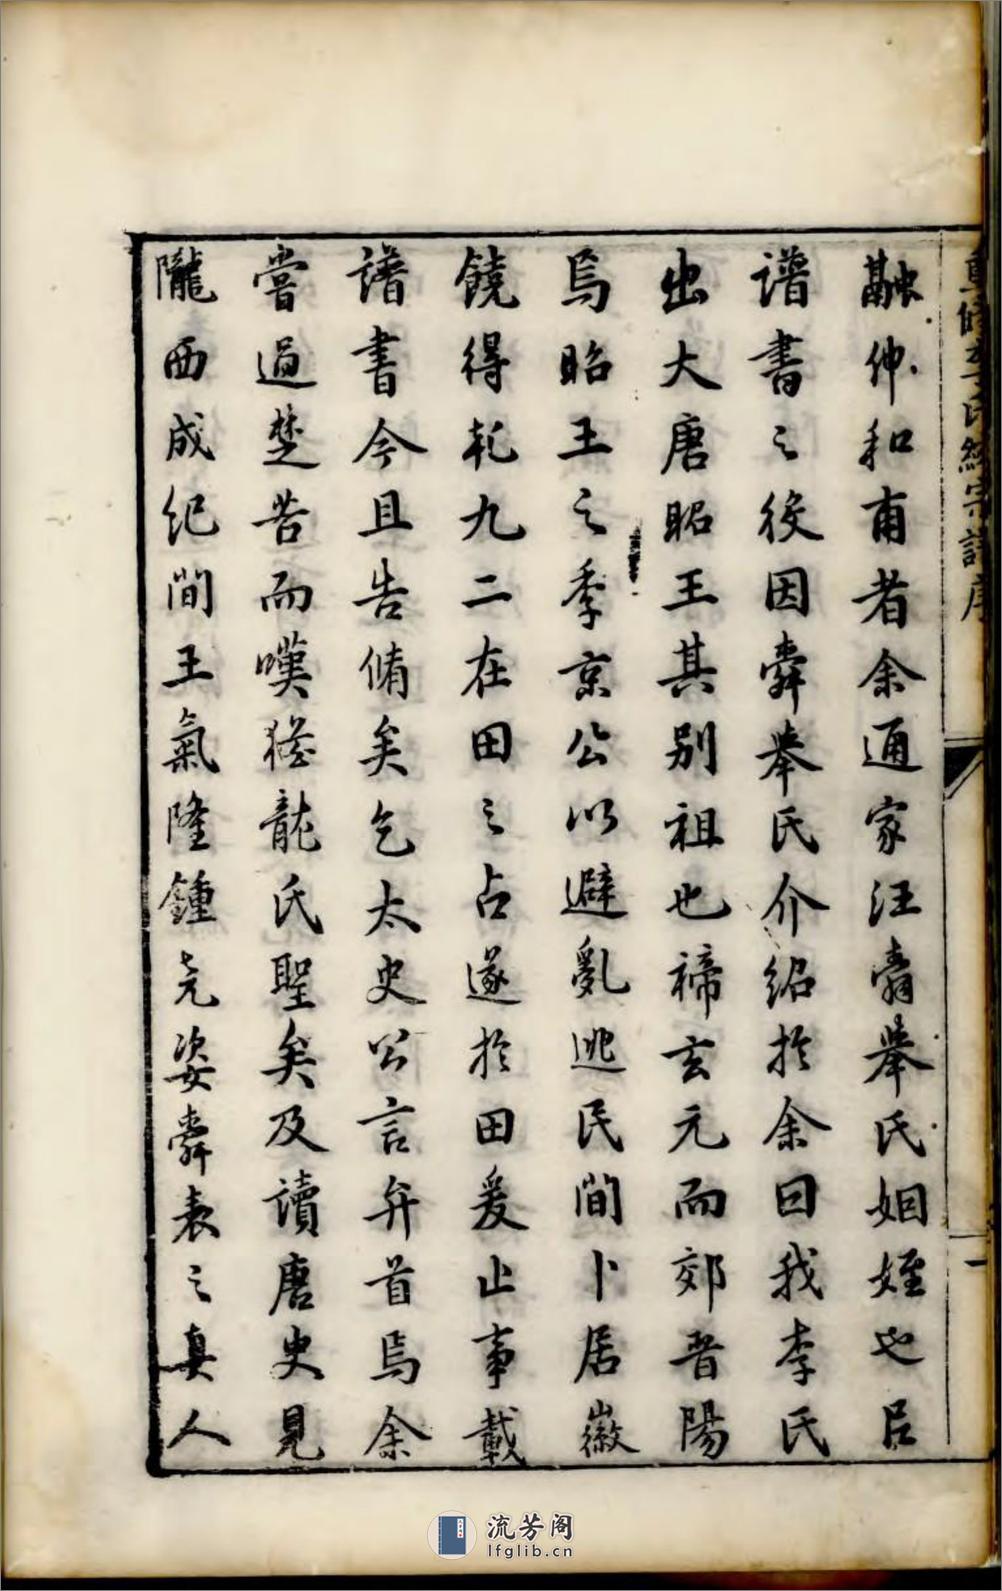 重修李氏統宗譜序
一
融仲和甫者余通家汪舜舉氏姻姪也臣
譜書之後因舜舉氏介紹於余曰我李氏
出大唐昭王其别祖也禘玄元而郊晋陽
焉昭王之季京公以避亂逃民間卜居徽
饒得乾九二在田之占遂於田爰止事載
譜書今且告脩矣乞太史公言弁首焉余
嘗過楚苦而嘆猶龍氏聖矣及讀唐史見
隴西成紀間王氣隆鍾堯姿舜表之真人
流芳阁
lfglib.cn